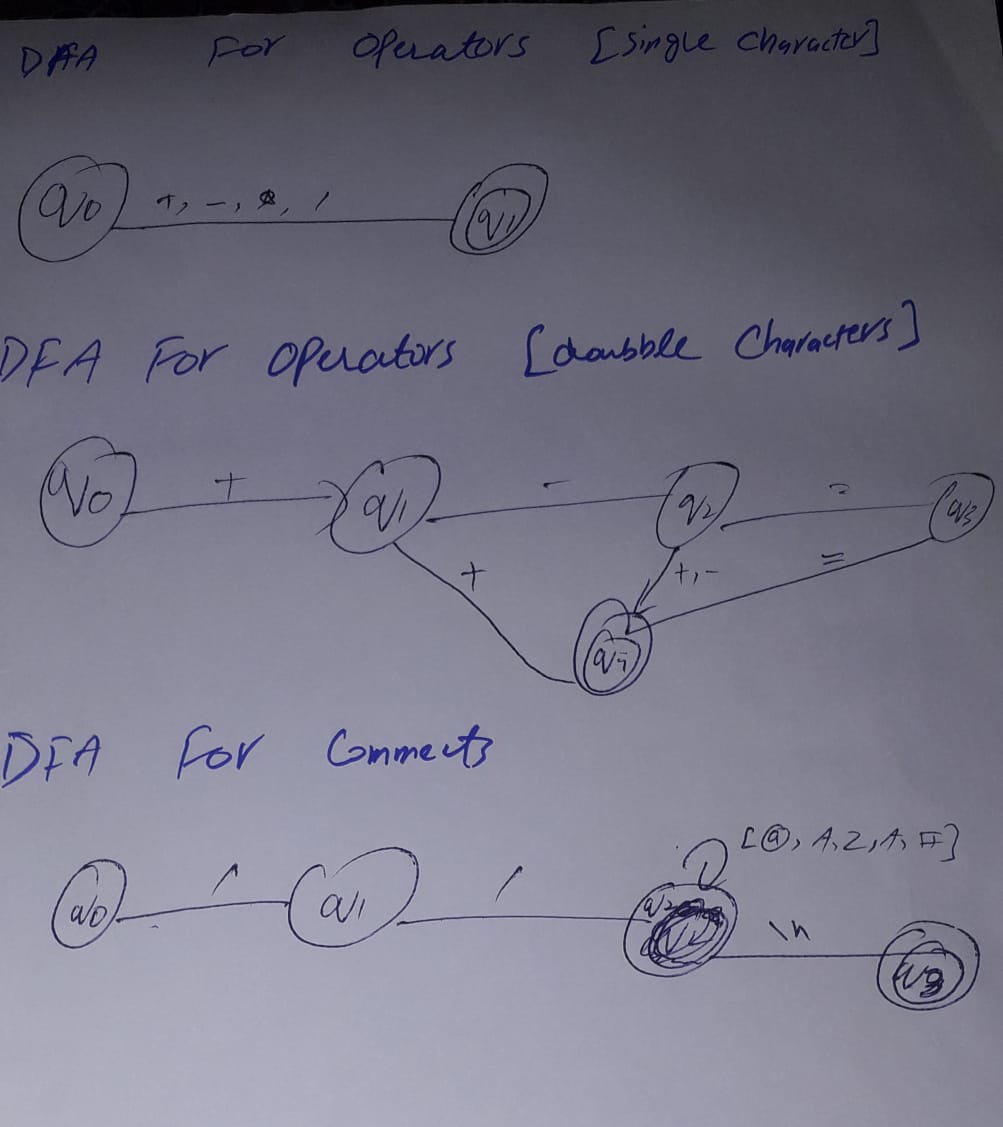 DFA For Operators [Single Character]
q0 +, -, *, / q1
DFA For Operators [doubble Characters]
q0 + q1 - q2 = q3
+ +,- =
DFA For Comments
[@, A, Z, A, #]
q0 / q1 / q2 \n q3